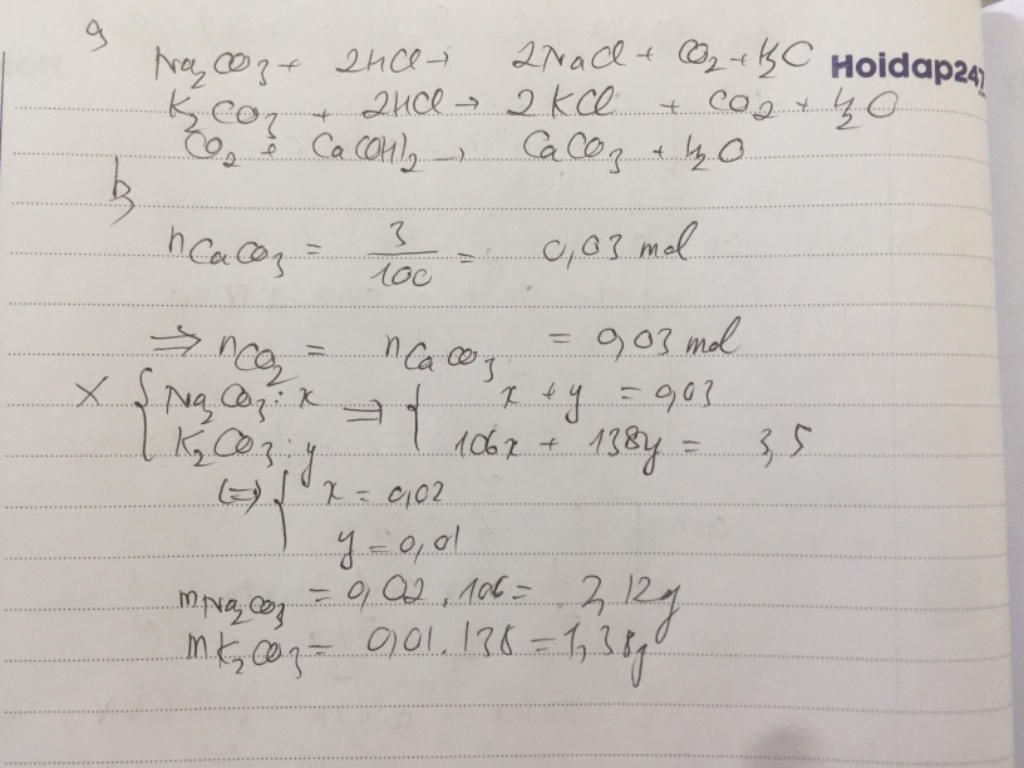 a
Na₂CO₃ + 2HCl → 2NaCl + CO₂ + H₂O
Hoidap247
K₂CO₃ + 2HCl → 2KCl + CO₂ + H₂O
CO₂ + Ca(OH)₂ → CaCO₃ + H₂O
b
nCaCO₃ = 3/100 = 0,03 mol
⇒ nCO₂ = nCaCO₃ = 0,03 mol
X { Na₂CO₃: x ⇒ { x + y = 0,03
K₂CO₃: y 106x + 138y = 3,5
(=) { x = 0,02
y = 0,01
mNa₂CO₃ = 0,02 . 106 = 2,12g
mK₂CO₃ = 0,01. 138 = 1,38g